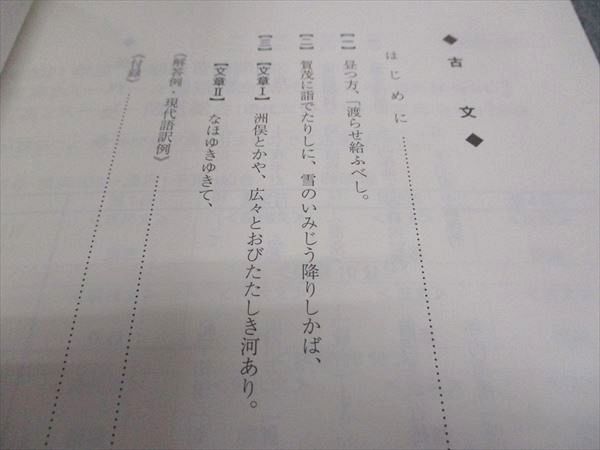 ◆古文◆
はじめに
【一】 昼つ方、「渡らせ給ふべし。
【二】 賀茂に詣でたりしに、雪のいみじう降りしかば、
【三】 【文章Ⅰ】 洲俣とかや、広々とおびたたしき河あり。
【文章Ⅱ】 なほゆきゆきて、
《解答例・現代語訳例》
《付録》